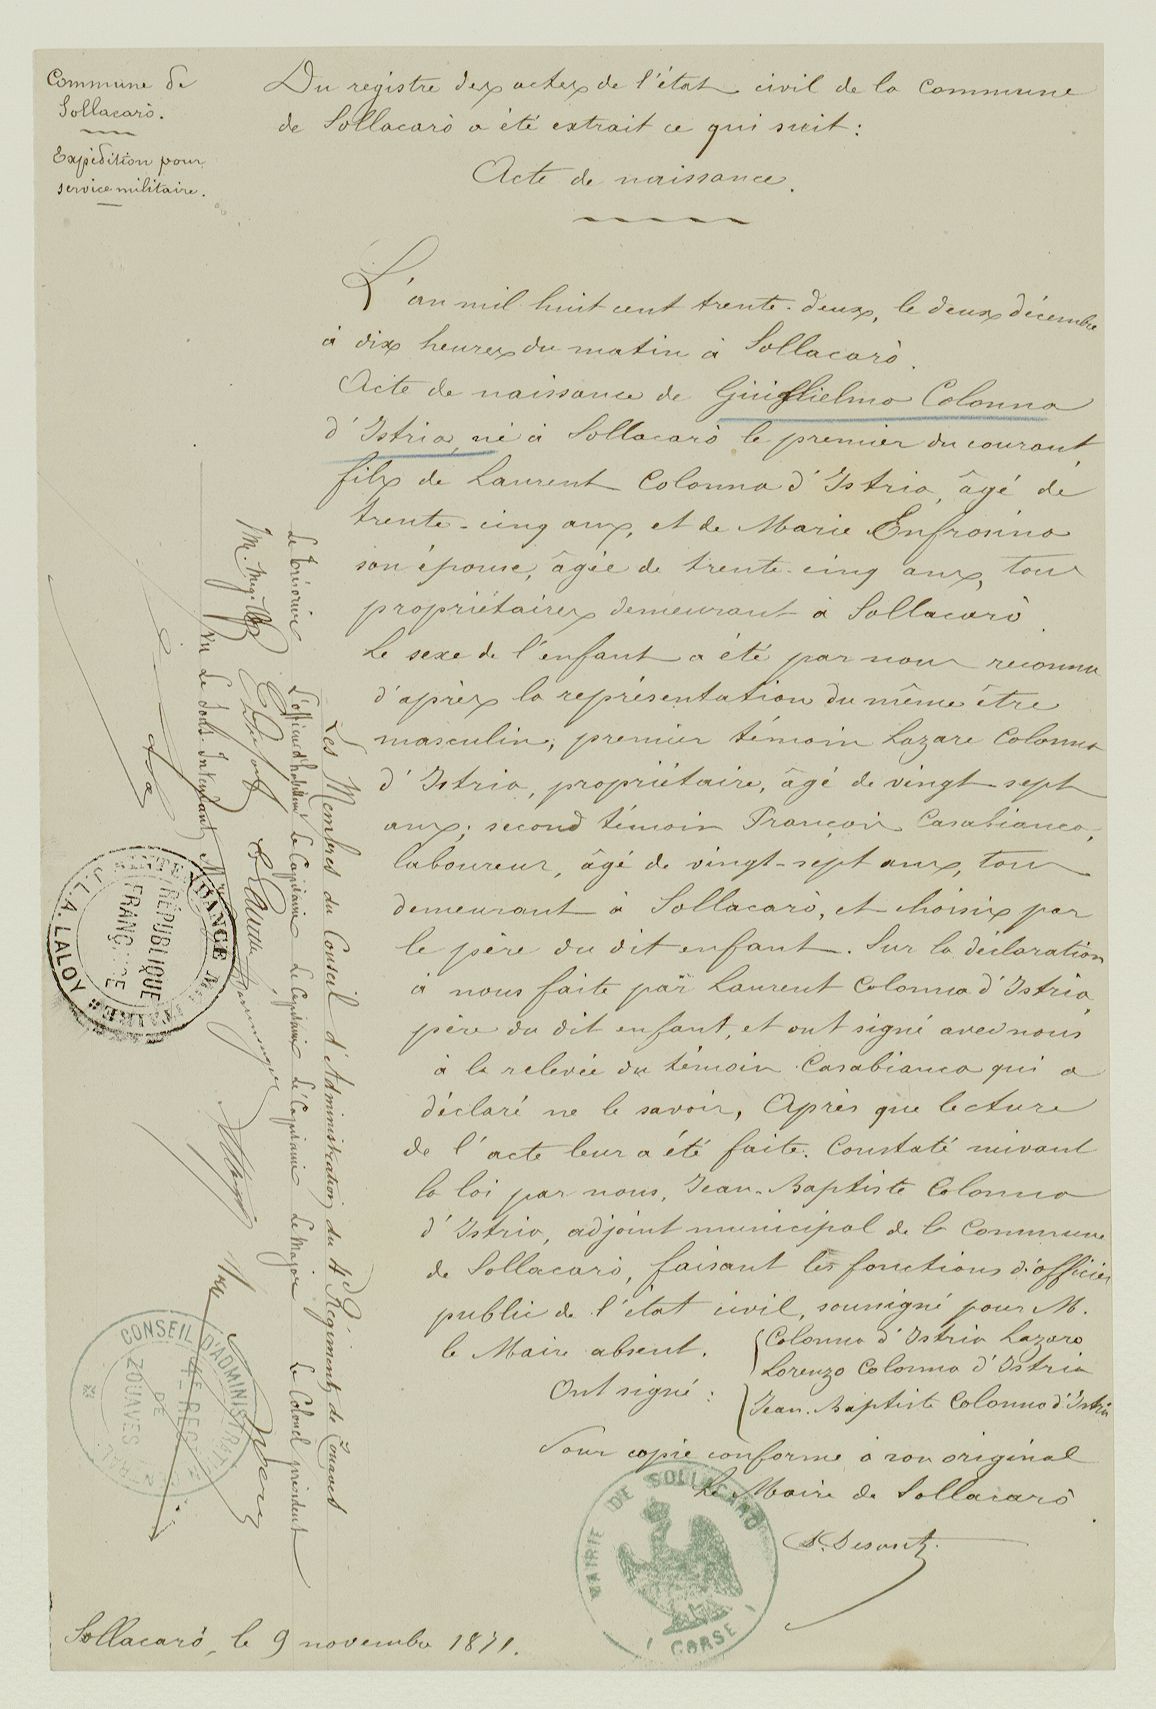 Commune de
Sollacarò.
Expédition pour
service militaire.
Du registre des actes de l'état civil de la Commune
de Sollacarò a été extrait ce qui suit :
Acte de naissance.
L'an mil huit cent trente-deux, le deux décembre
à dix heures du matin à Sollacarò.
Acte de naissance de Guiglielmo Colonna
d'Istria, né à Sollacarò le premier du courant,
fils de Laurent Colonna d'Istria, âgé de
trente-cinq ans, et de Marie Enfrosina
son épouse, âgée de trente-cinq ans, tous
propriétaires demeurant à Sollacarò
Le sexe de l'enfant a été par nous reconnu
d'après la représentation du même être
masculin; premier témoin Lazare Colonna
d'Istria, propriétaire, âgé de vingt sept
ans; second témoin François Casabianca,
laboureur, âgé de vingt-sept ans, tous
demeurant à Sollacarò, et choisis par
le père du dit enfant. Sur la déclaration
à nous faite par Laurent Colonna d'Istria
père du dit enfant, et ont signé avec nous
à la relevée du témoin Casabianca qui a
déclaré ne le savoir, Après que lecture
de l'acte leur a été faite. Constaté suivant
la loi par nous, Jean-Baptiste Colonna
d'Istria, adjoint municipal de la Commune
de Sollacarò, faisant les fonctions d'officier
public de l'état civil, soussigné pour M.
le Maire absent.
Ont signé :
Colonna d'Istria Lazaro
Lorenzo Colonna d'Istria
Jean-Baptiste Colonna d'Istria
Pour copie conforme à son original
Le Maire de Sollacarò
MAIRIE DE SOLLACARO
CORSE
Sollacarò, le 9 novembre 1871.
Les Membres du Conseil d'Administration du 4e Régiment de Zouaves
Le trésorier L'officier d'habillemt Le Capitaine Le Capitaine Le Capitaine Le Major Le Colonel président
Vu Le Sous Intendant Mre
INTENDANCE MILITAIRE
A. LALOY
RÉPUBLIQUE
FRANÇAISE
CONSEIL D'ADMINISTRATION
CENTRAL
4E REGT
DE
ZOUAVES